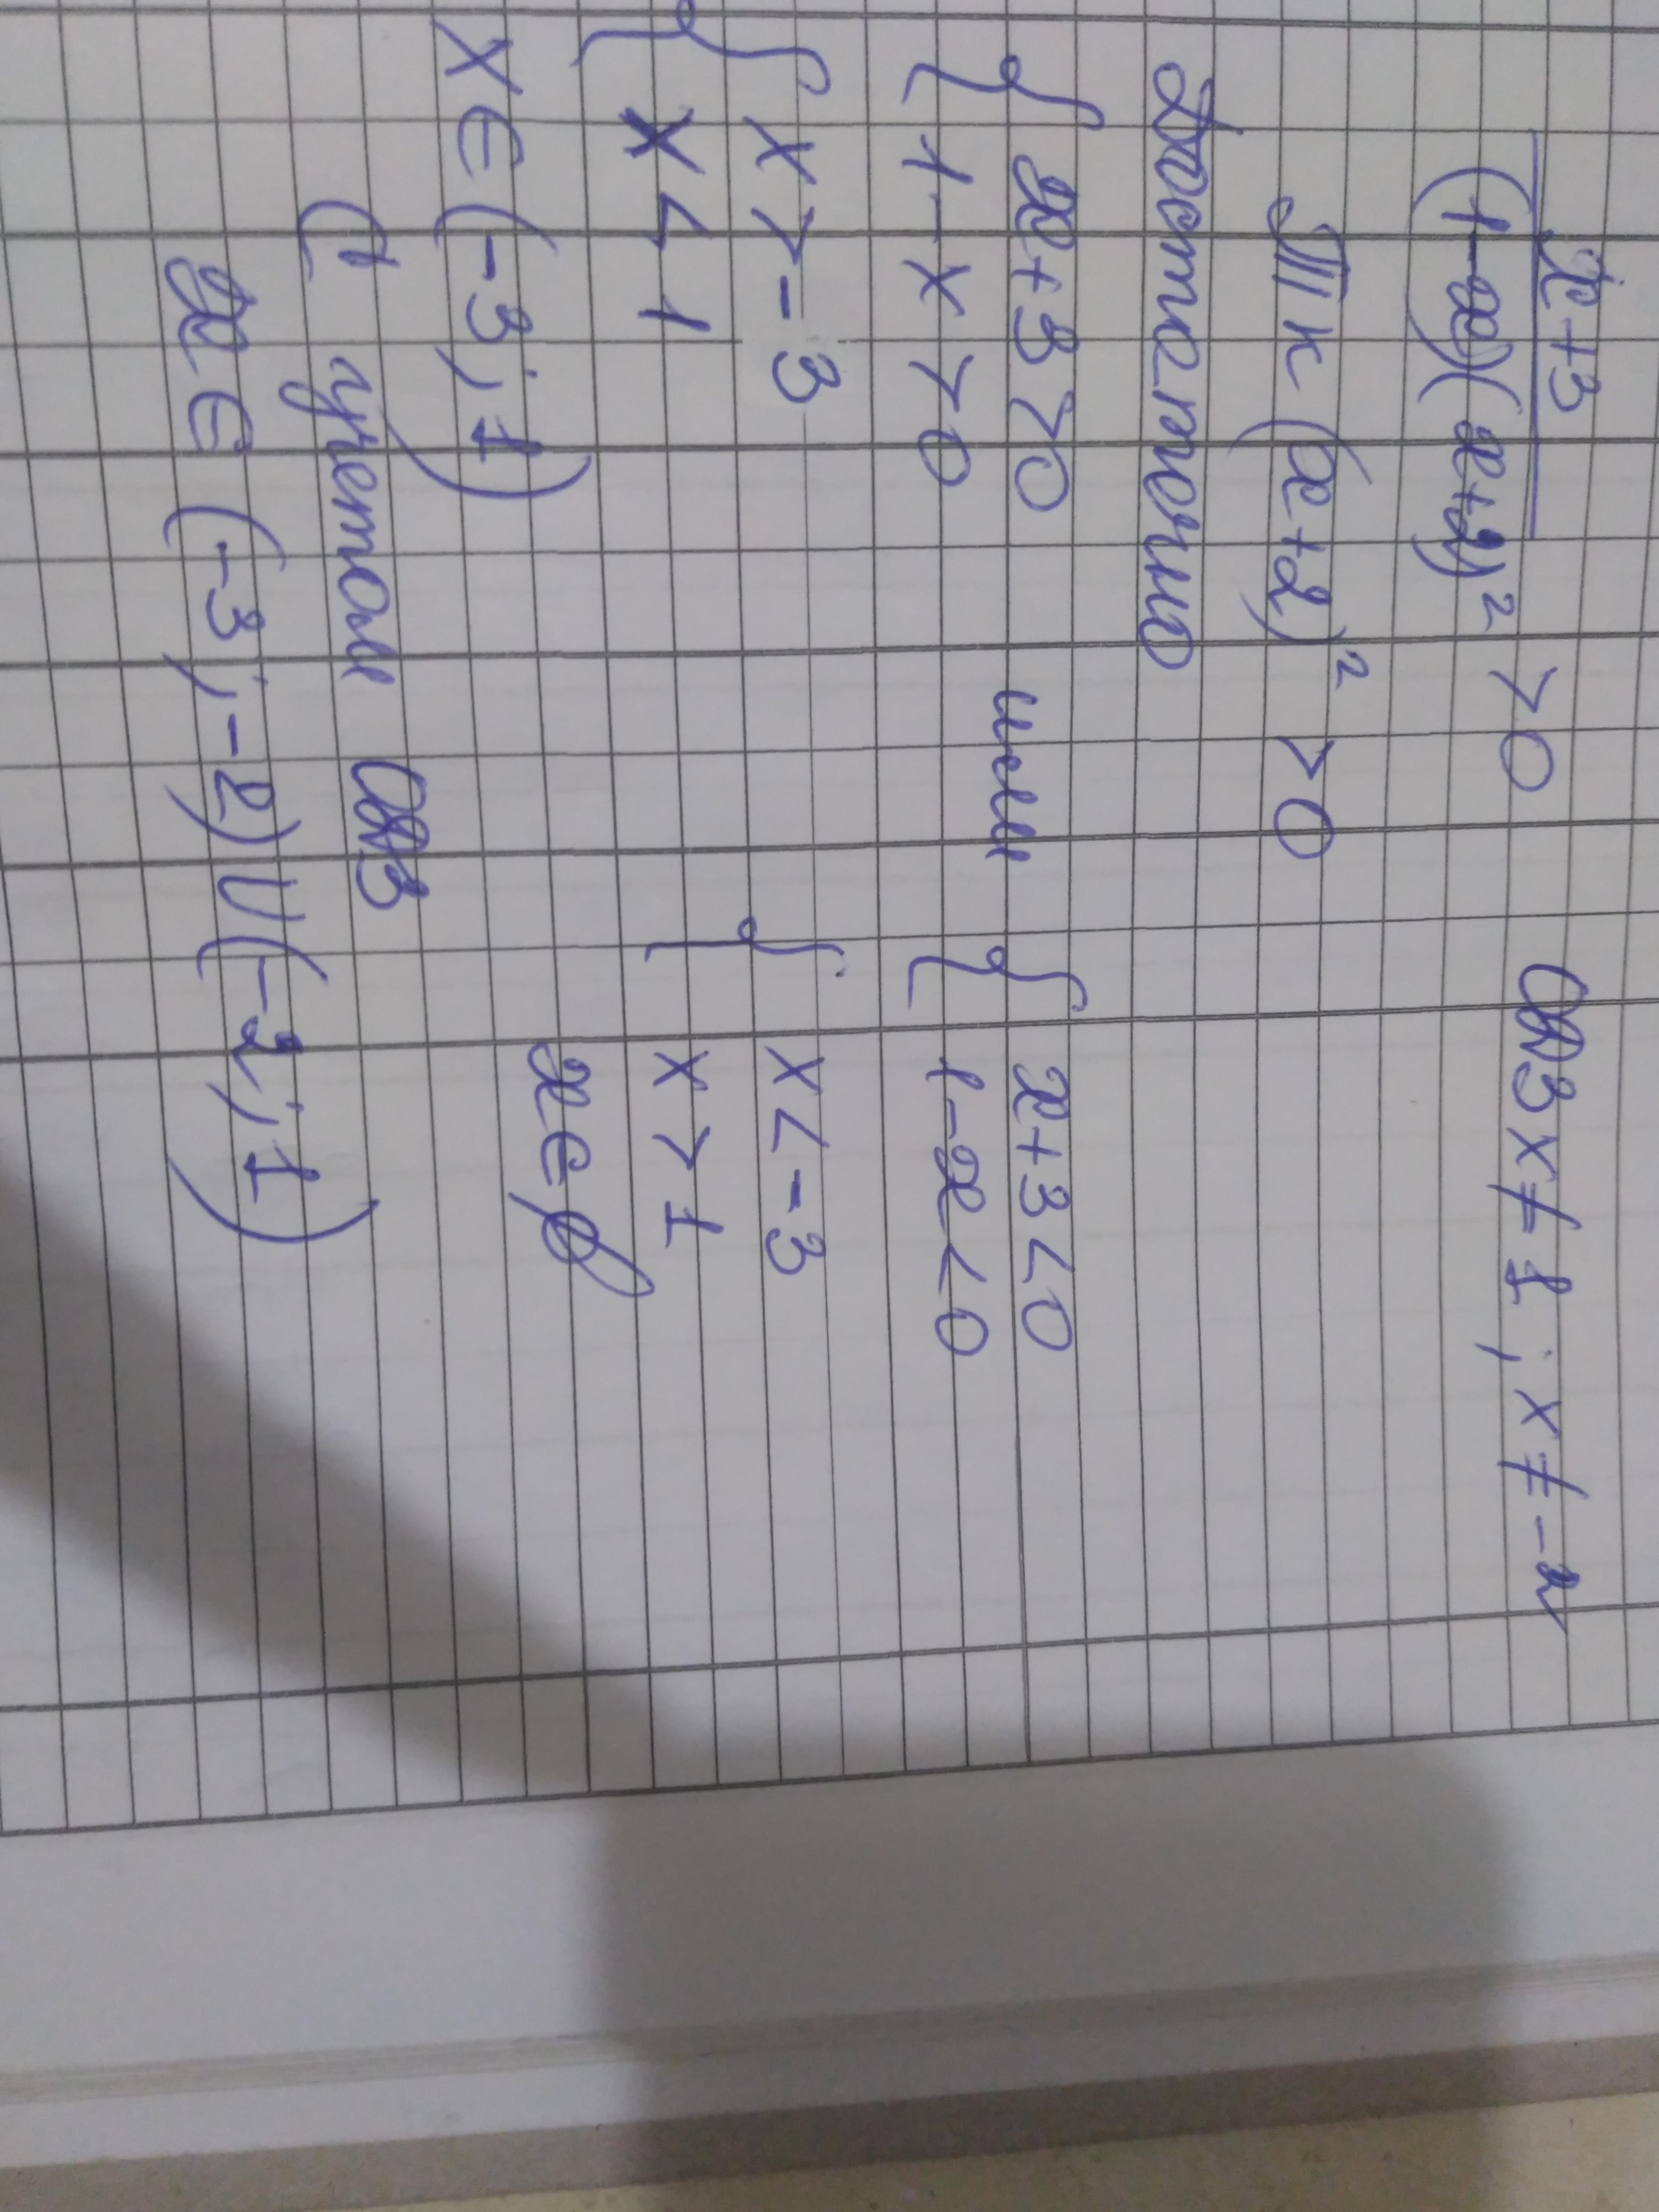 x+3
(1-x)(x+2)² > 0 ОДЗ x≠1; x≠-2
Тк (x+2)² > 0
Достаточно
{ x+3>0 или { x+3<0
1-x>0 1-x<0
{ x>-3 { x<-3
x<1 x>1
x∈(-3;1) x∈∅
С учетом ОДЗ
x∈(-3;-2)U(-2;1)